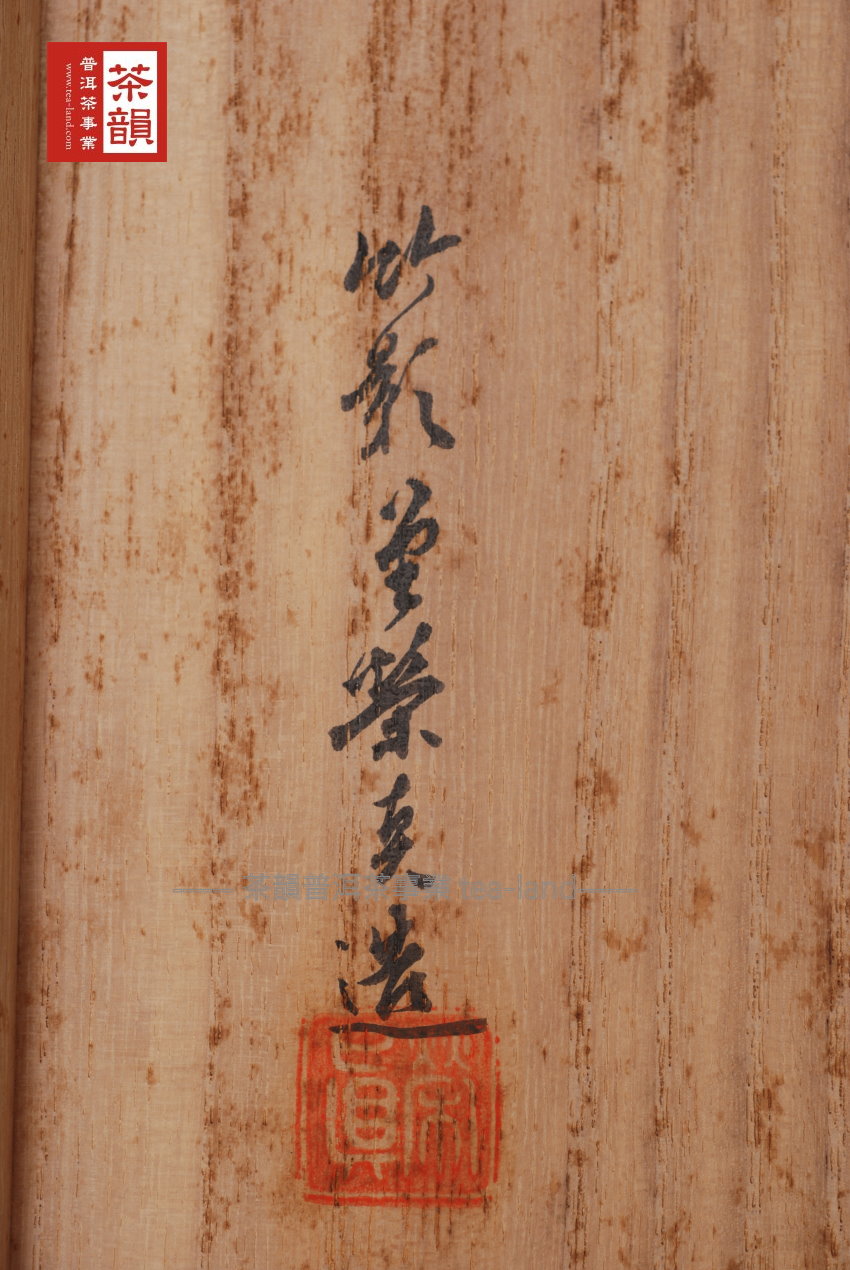 茶韻
普洱茶事業
www.tea-land.com
竹影堂榮真造
茶韻普洱茶事業 tea-land
榮真